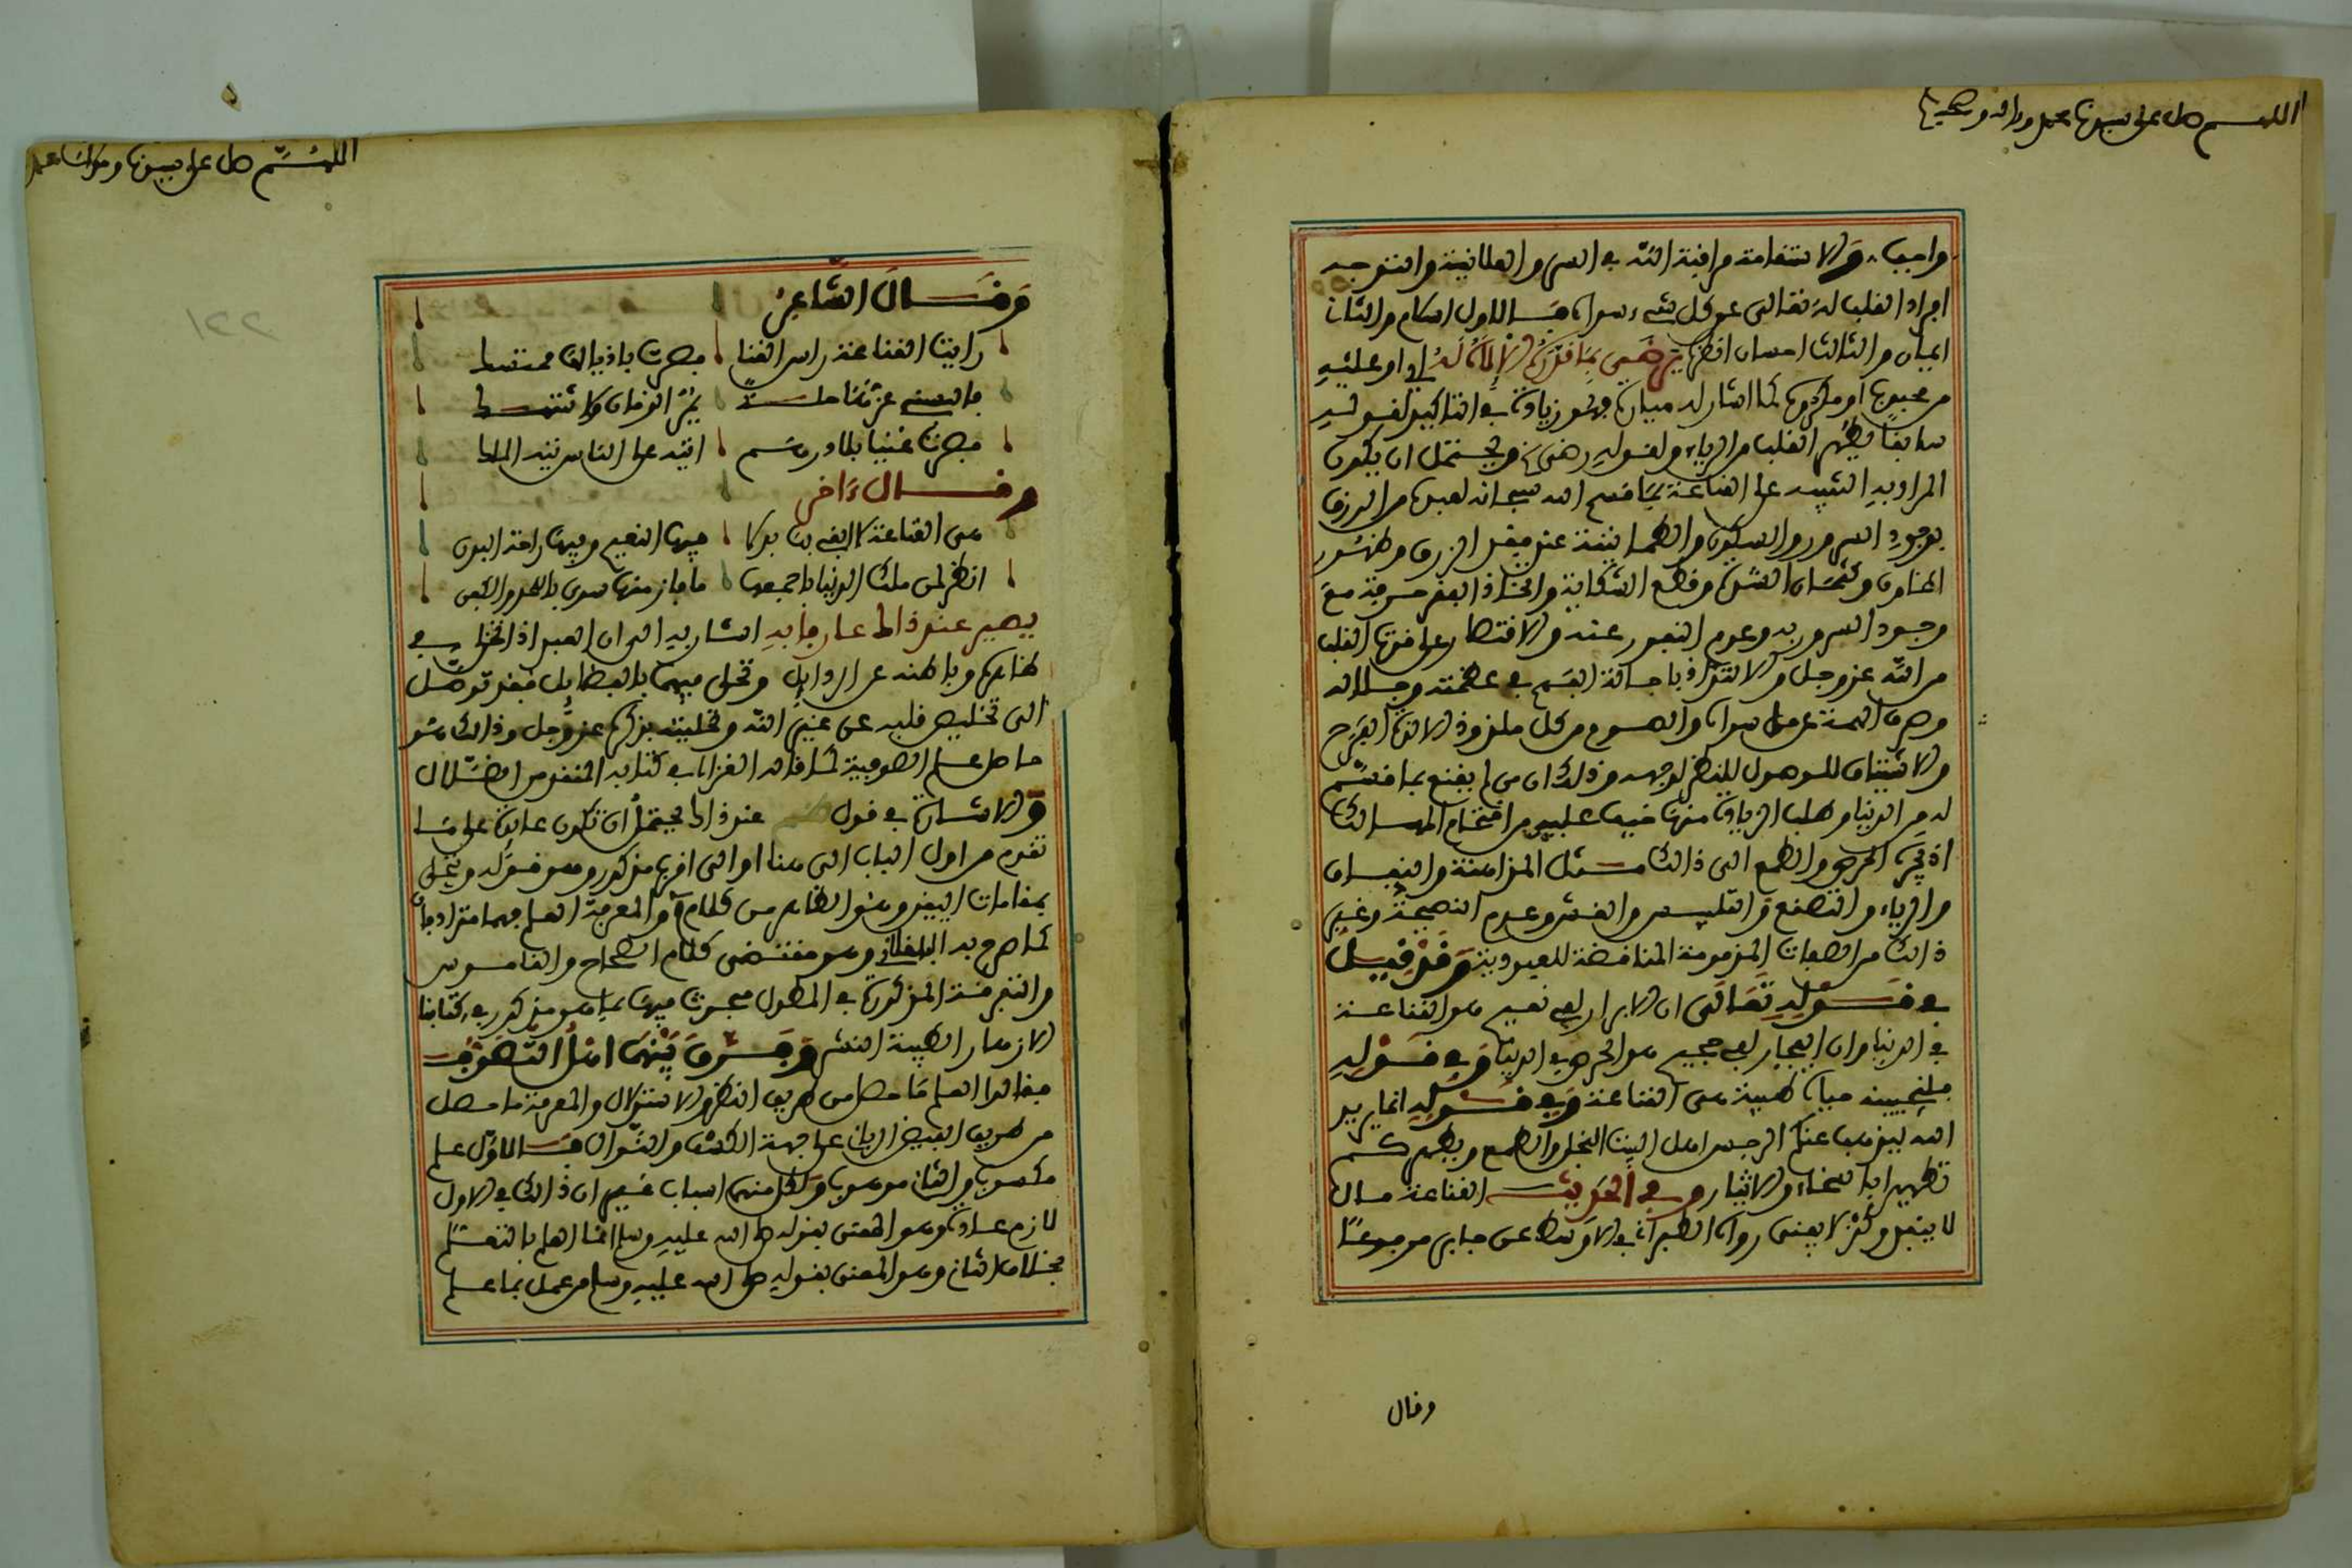 اللهم صل على سيدنا محمد وءاله وصحبه
واجب، والاستقامة مراقبة الله في السر والعلانية والتوجه
افراد القلب له تعالى عن كل شيء سواه فالاول اسلام والثاني
ايمان والثالث احسان انظره يرضى بما قدره الاله له اي او عليه
من محبوب او مكروه كما اشار له ميارة وهو زيادة في التاكيد لقوله
سابقا يطهر القلب من الرياء ولقوله رضى ويحتمل ان يكون
المراد به التنبيه على القناعة بما قسم الله سبحانه لعبده من الرزق
بوجود السرور والسكون والطمانينة عند ضيق الرزق وظهور
المخاوف وكتمان الضر وقطع الشكاية واتخاذ الفقر حرفة مع
وجود السرور به وعدم النفور عنه والاقتصار على قوت القلب
من الله عز وجل والالتذاذ باحالة الفهم في عظمته وجلاله
وصرف الهمة عن كل سواه والصوم من كل ملذوذ الا لذة الفرح
والاشتياق للوصول للنظر لوجهه وذلك ان من لم يقنع بما قسم
له من الدنيا وطلب الزيادة منها خيف عليه من اقتحام المهالك
اذ يجره الحرص والطمع الى ذالك مثل المداهنة والنفاق
والرياء والتصنع والتلبيس والغش وعدم النصيحة وغير
ذالك من الصفات المذمومة المناقضة للعبودية وقد قيل
في قوله تعالى ان الابرار لفي نعيم هو القناعة
في الدنيا وان الفجار لفي جحيم هو الحرص في الدنيا وفي قوله
فلنحيينه حياة طيبة هي القناعة وفي قوله انما يريد
الله ليذهب عنكم الرجس اهل البيت البخل والطمع ويطهركم
تطهيرا بالسخاء والايثار وفي الحديث القناعة مال
لا ينفد وكنز لا يفنى رواه الطبراني في الاوسط عن جابر مرفوعا
وقال
اللهم صل على سيدنا ومولانا محمد
وقال الشاعر
رايت القناعة راس الغنا فصرت باذيالها ممتسك
فالبسني عزها حلة يمر الزمان ولا تنتهك
فصرت غنيا بلا درهم اتيه على الناس تيه الملك
وقال ءاخر
هي القناعة لا تبغي بها بدلا فيها النعيم وفيها راحة البدن
انظر لمن ملك الدنيا باجمعها ما فاز منها سوى بالقطن والكفن
يصير عند ذاك عارفا به اشار به الى ان العبد اذا تخلى في
ظاهره وباطنه عن الرذايل وتحلى فيهما بالفضايل فقد توصل
الى تخليص قلبه عن غير الله وتحليته بذكره عز وجل وذالك هو
حاصل علم الصوفية كما قاله الغزالي في كتابه المنقذ من الضلال
والاشارة في قول عند ذاك يحتمل ان تكون عايدة على ما
تقدم من اول الباب الى هنا او الى اقرب مذكور وهو قوله ويتحلى
بمقامات اليقين وهو الظاهر من كلامه والمعرفة العلم فهما مترادفان
كما صرح به الباقلاني وهو مقتضى كلام الصحاح والقاموس
والتفرقة المذكورة في المطول مبحوث فيها بما هو مذكور في كتابنا
الازهار الطيبة النشر وفرق بينهما اهل التصوف
فقالوا العلم ما حصل من طريق النظر والاستدلال والمعرفة ما حصل
من طريق الفيض الرباني على جهة الكشف والنوال فالاول علم
مكسوب والثاني موهوب ولكل منهما اسباب غير ان ذالك في الاول
لازم عادة وهو المعنى بقوله صلى الله عليه وسلم انما العلم بالتعلم
بخلاف الثاني وهو المعنى بقوله صلى الله عليه وسلم من عمل بما علم